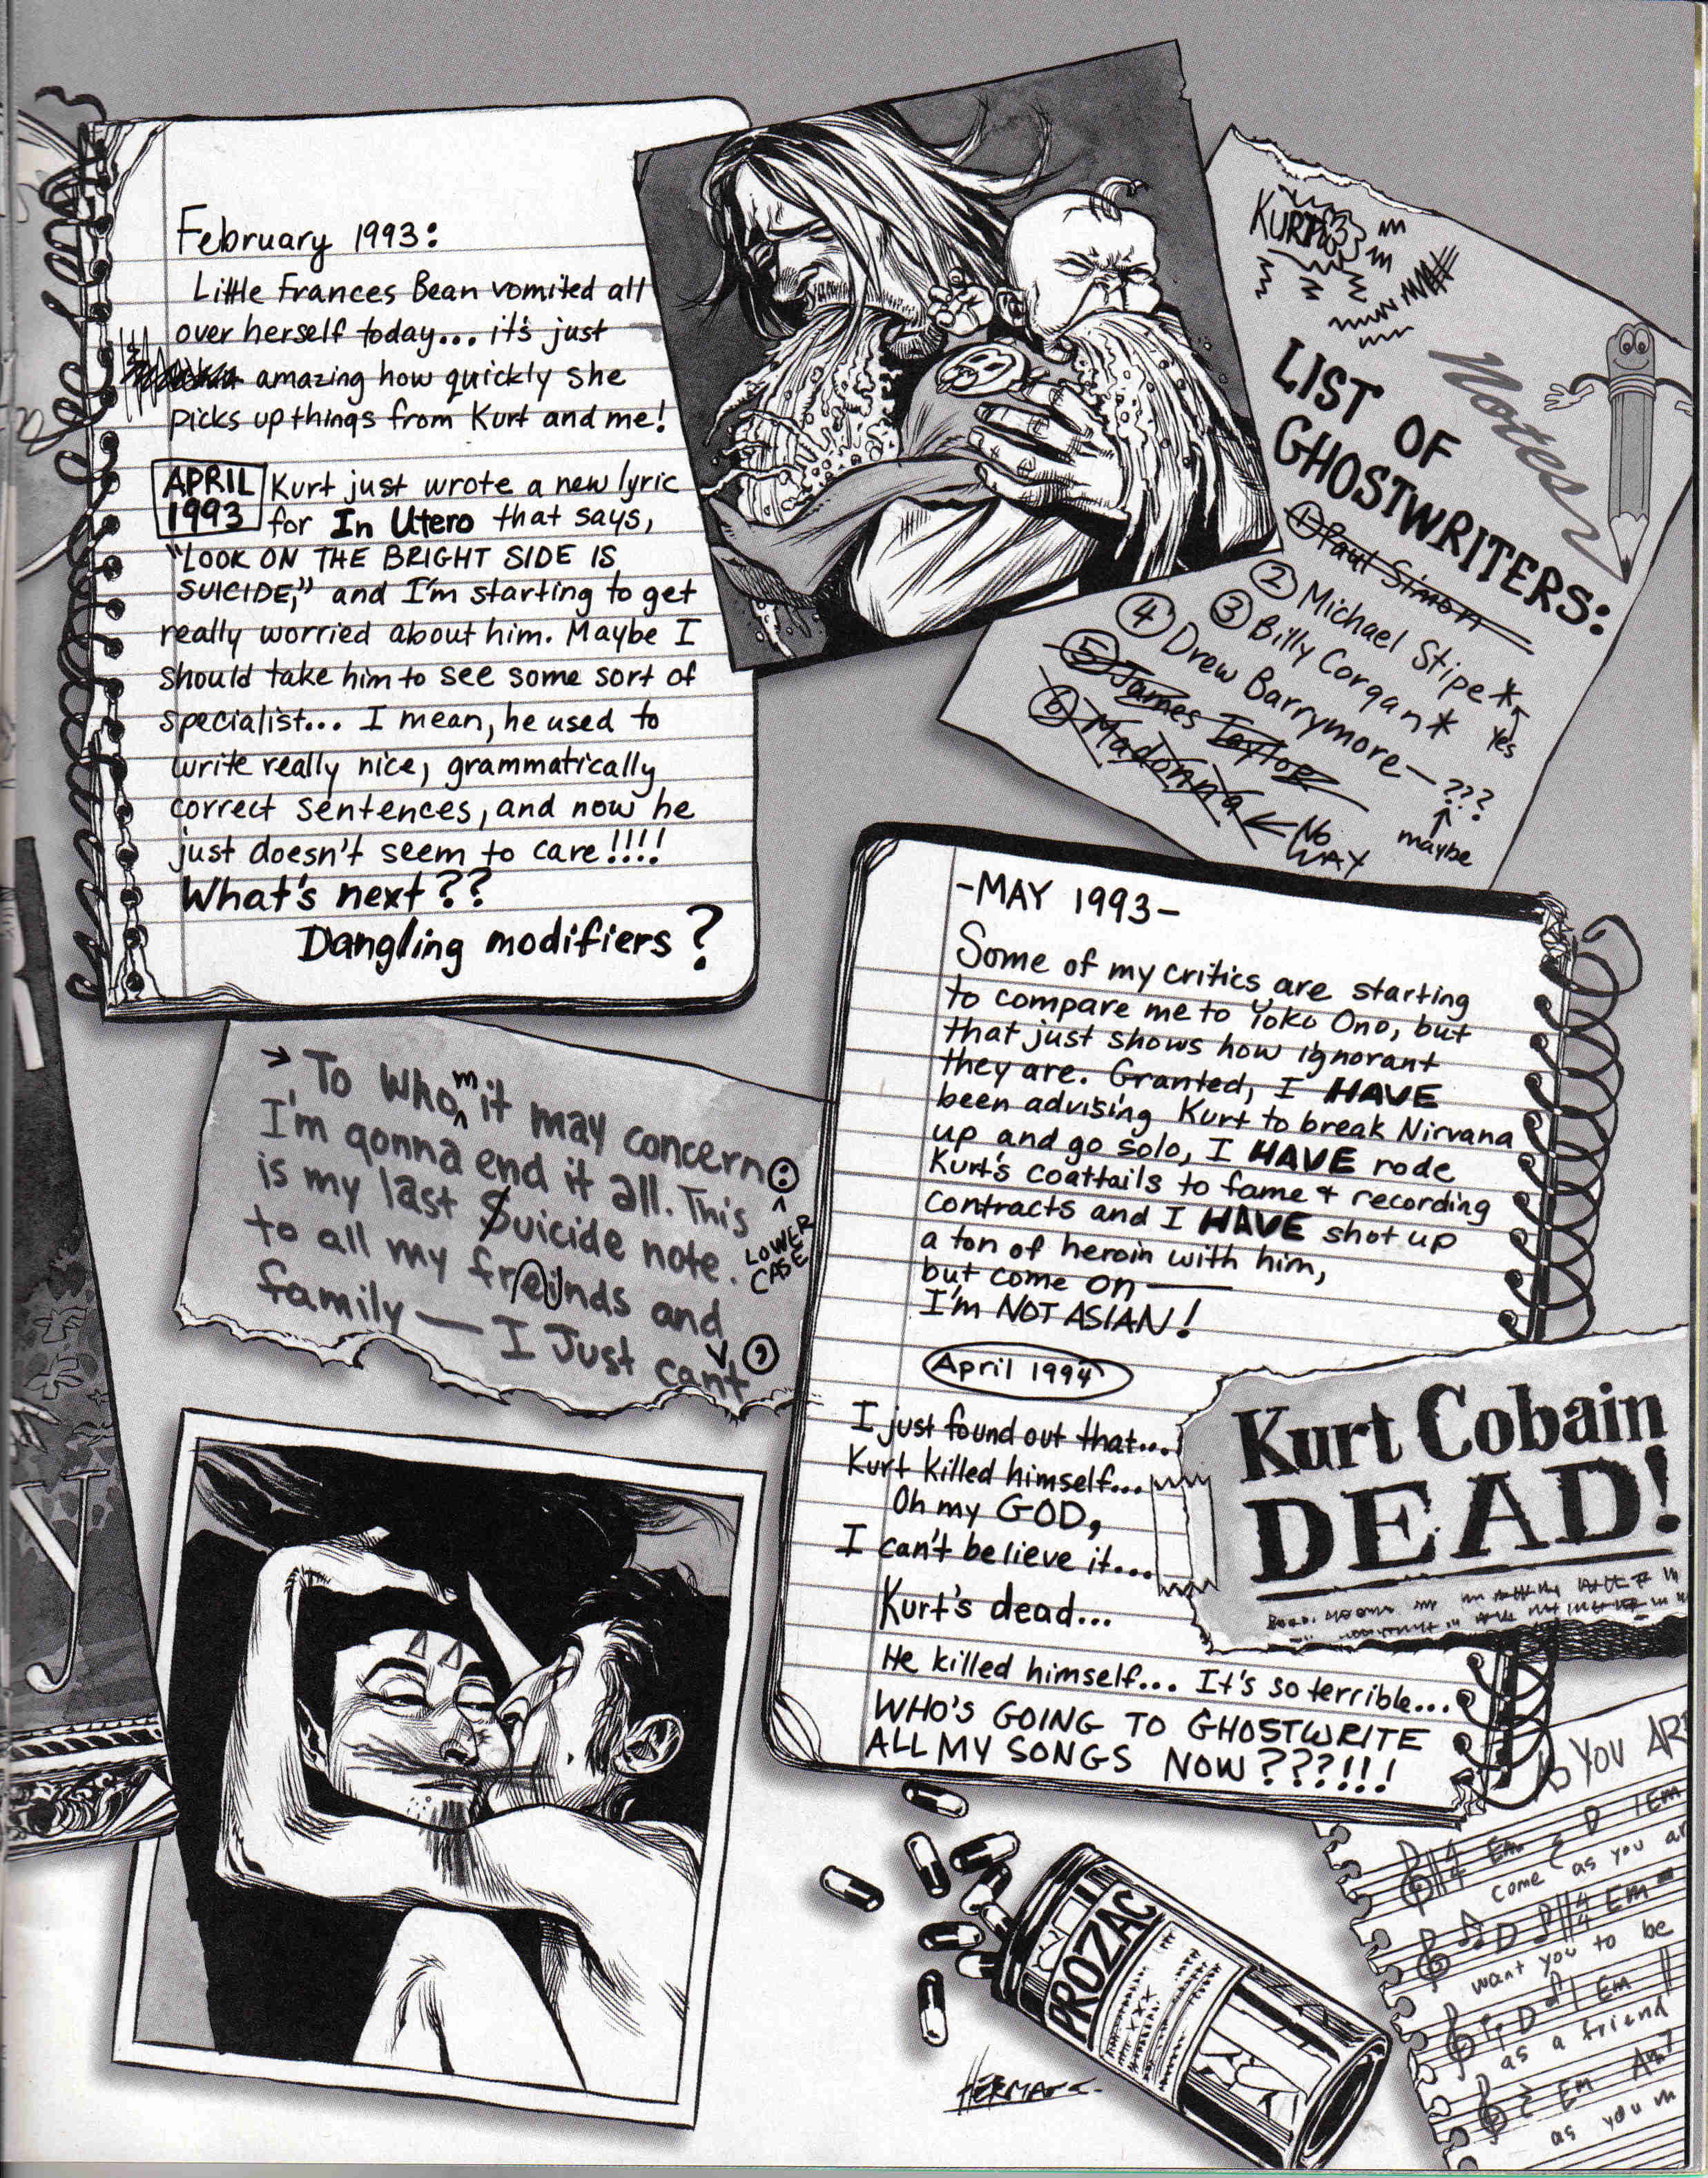 February 1993:
Little Frances Bean vomited all
over herself today... it's just
amazing how quickly she
picks up things from Kurt and me!
APRIL
1993
Kurt just wrote a new lyric
for In Utero that says,
"LOOK ON THE BRIGHT SIDE IS
SUICIDE," and I'm starting to get
really worried about him. Maybe I
should take him to see some sort of
specialist... I mean, he used to
write really nice, grammatically
correct sentences, and now he
just doesn't seem to care!!!!
What's next??
Dangling modifiers?
KURT
Notes
LIST OF
GHOSTWRITERS:
① Paul Simon
② Michael Stipe*
Yes
③ Billy Corgan*
④ Drew Barrymore—???
maybe
⑤ James Taylor
⑥ Madonna ← NO
WAY
-MAY 1993-
Some of my critics are starting
to compare me to Yoko Ono, but
that just shows how ignorant
they are. Granted, I HAVE
been advising Kurt to break Nirvana
up and go solo, I HAVE rode
Kurt's coattails to fame + recording
contracts and I HAVE shot up
a ton of heroin with him,
but come on —
I'm NOT ASIAN!
→ To Whom it may concern:
I'm gonna end it all. This
is my last Suicide note.
LOWER
CASE
to all my freinds and
family — I Just can't
April 1994
I just found out that...
Kurt killed himself...
Oh my GOD,
I can't believe it...
Kurt's dead...
He killed himself... It's so terrible...
WHO'S GOING TO GHOSTWRITE
ALL MY SONGS NOW???!!!
Kurt Cobain
DEAD!
PROZAC
XXX
HERMANN
YOU AR
4/4 Em D Em
come as you ar
D 4/4 Em
want you to be
D Em
as a friend
Em Am7
as you w